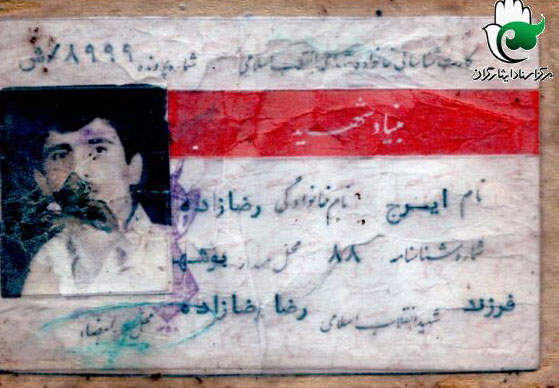 مرکز اسناد ایثارگران
کارت شناسائی خانواده شهدای انقلاب اسلامی شماره پرونده ۸۹۹۹/ش
بنیاد شهید
نام ایرج نام خانوادگی رضازاده
شماره شناسنامه ۸۸ محل صدور بوشهر
فرزند شهید انقلاب اسلامی رضا رضازاده
محل مهر و امضاء